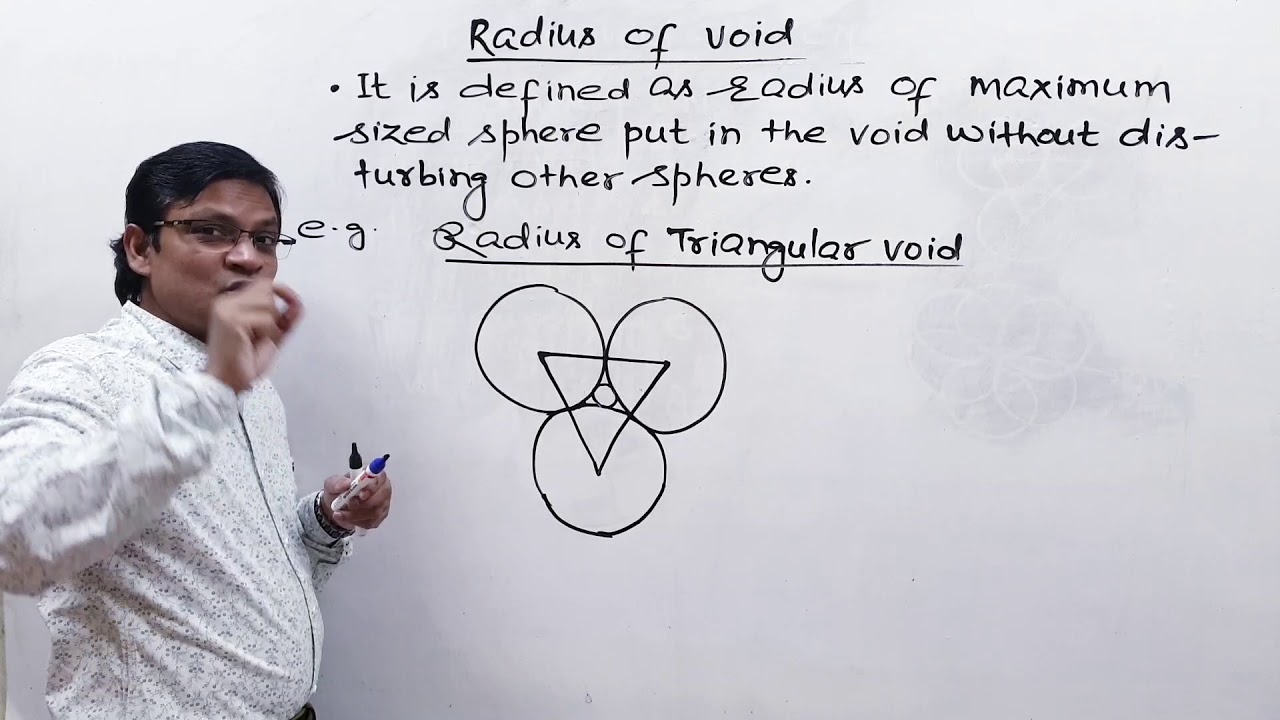 Radius of void
• It is defined as radius of maximum
sized sphere put in the void without dis-
turbing other spheres.
e.g. Radius of Triangular void